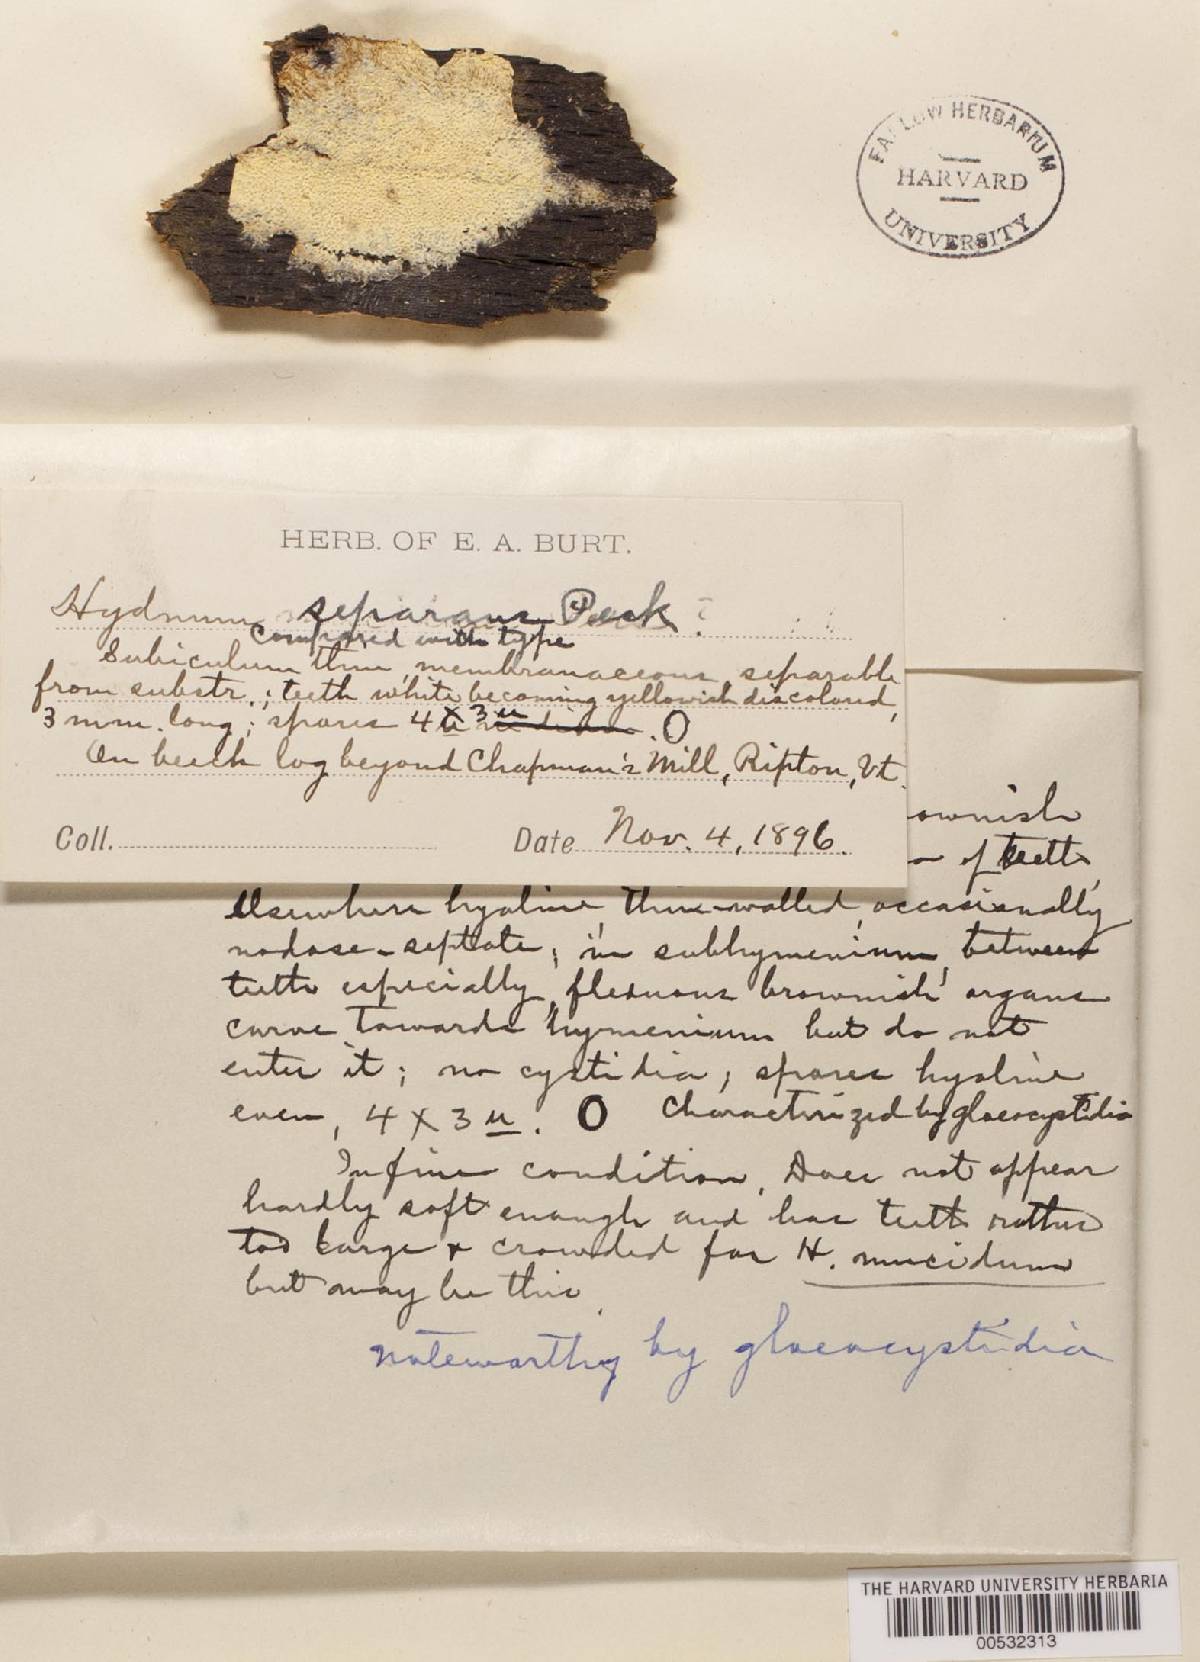 FARLOW HERBARIUM
HARVARD
UNIVERSITY
HERB. OF E. A. BURT.
Hydnum separans Peck ?
compared with type
Subiculum thin, membranaceous, separable
from substr.; teeth white becoming yellowish discolored,
3 mm. long; spores 4 x 3 µ. O
On beech log beyond Chapman's Mill, Ripton, Vt.
Coll. Date Nov. 4, 1896.
ownish
of teeth,
elsewhere hyaline, thin-walled, occasionally
nodose-septate; in subhymenium, between
teeth especially, flexuous brownish organs
curve towards hymenium but do not
enter it; no cystidia; spores hyaline
even, 4 x 3 µ. O Characterized by gloeocystidia
In fine condition. Does not appear
hardly soft enough and has teeth rather
too large & crowded for H. mucidum
but may be this.
noteworthy by gloeocystidia
THE HARVARD UNIVERSITY HERBARIA
00532313